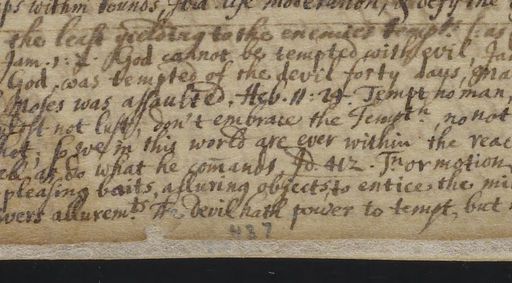 ps within bounds, use moderation, & defy the
the least yielding to the enemies tempt:
Jam. 1. 2. God cannot be tempted with evil, Jam
God, was tempted of the devil forty days, Ma
Moses was assaulted. Heb. 11. 24. Tempt no man,
not lust, don't embrace the Temptn no not
so we in this world are ever within the reac
do what he comands Jd. 412. Tn or motion
pleasing baits, alluring objects to entice the mi
vers alluremts The Devil hath power to tempt, but
437